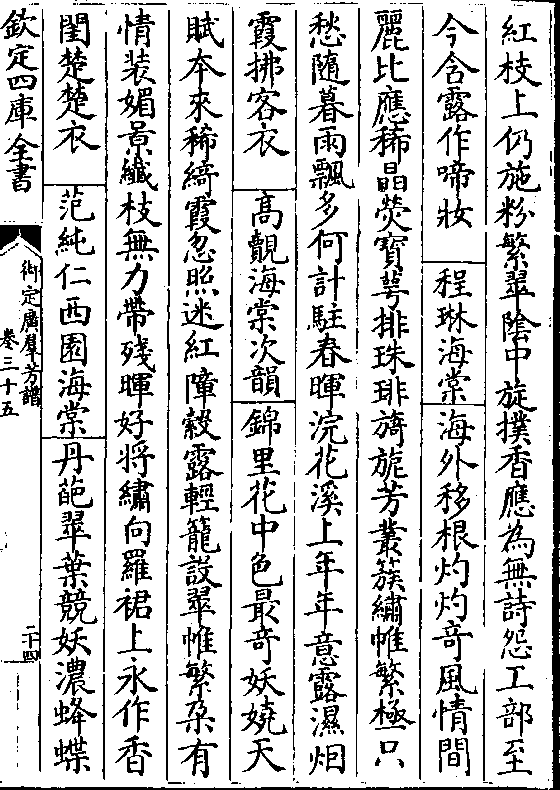 紅枝上仍施粉繁翠陰中旋撲香應為無詩怨工部至
今含露作啼妝 程琳海棠 海外移根灼灼竒風情閒
麗比應稀晶熒寳萼排珠琲旖旎芳叢簇繡帷繁極只
愁隨暮雨飄多何計駐春暉浣花溪上年年意露濕烟
霞拂客衣 髙覿海棠次韻 錦里花中色最竒妖嬈天
賦本來稀綺霞忽照迷紅障縠露輕籠設翠帷繁朶有
情装媚景纎枝無力帶殘暉好將繡向羅裙上永作香
閨楚楚衣 范純仁西園海棠 丹葩翠葉競妖濃蜂蝶
欽定四庫全書
御定廣羣芳譜
卷三十五
二十四